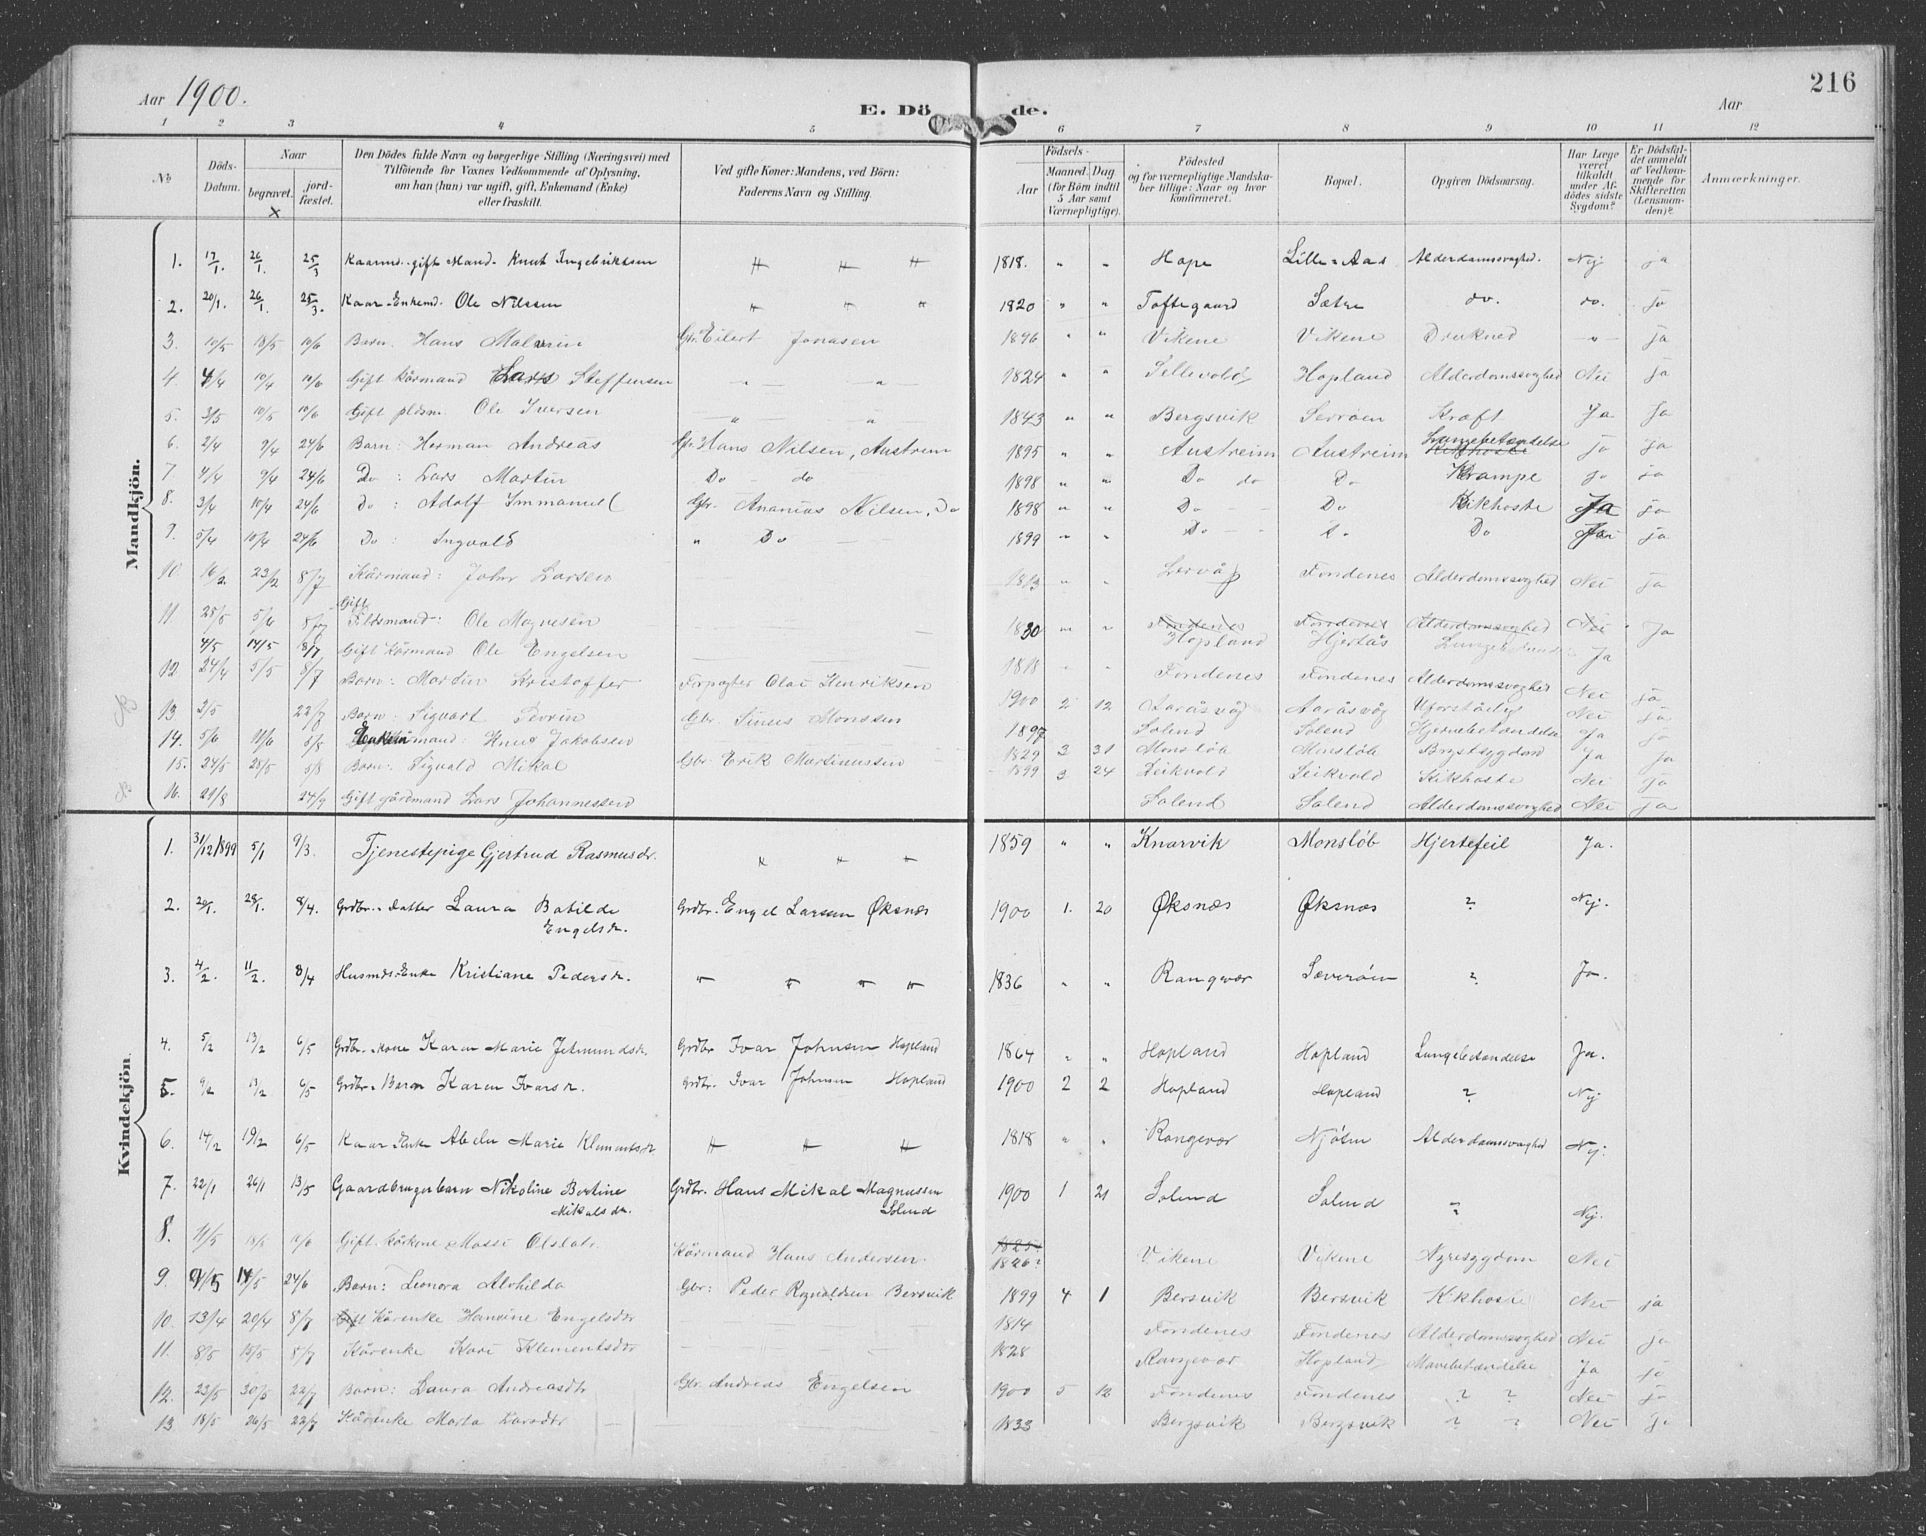 Aar 1900.
E. Döde.
Aar
216
1 2 3 4 5 6 7 8 9 10 11 12
No
Döds-Datum.
Naar
begravet.
jord-fæstet.
Den Dödes fulde Navn og borgerlige Stilling (Næringsvei) med
Tilföiende for Voxnes Vedkommende af Oplysning,
om han (hun) var ugift, gift, Enkemand (Enke)
eller fraskilt.
Ved gifte Koner: Mandens, ved Börn:
Faderens Navn og Stilling.
Födsels-
Aar
Maaned Dag
(for Börn indtil
5 Aar samt
Værnepligtige).
Födested
og for værnepligtige Mandska-
ber tillige: Naar og hvor
konfirmeret.
Bopæl.
Opgiven Dödsaarsag.
Har Læge
været
tilkaldt
under Af-
dödes sidste
Sygdom?
Er Dödsfal-
det anmeldt
af Vedkom-
mende for
Skifteretten
(Lensman-
den)?
Anmærkninger.
Mandkjön.
1. 17/1. 26/1. 25/3 Kaarmd. gift Mand. Knut Ingebriktsen 1818. " " Hope Lille-Aas Alderdomssvaghed. Nej ja
2. 20/1. 26/1. 25/3. Kaar-Enkemd. Ole Nilssen 1820 " " Toftegaard Sætre do. do. ja
3. 10/5 18/5 10/6 Barn: Hans Gbr. Eilert Jonasen 1896 " " Vikene Vikene Drukned ja
4. 4/4 10/4 10/6 Gift kårmand Lars Steffensen 1824 " " Sellevold Hopland Alderdomssvaghed Nei ja
5. 3/5 10/5 10/6 Gift pldsm. Ole Iversen 1843 " " Bergsvik Kræft Ja Ja
6. 2/4 9/4 24/6 Barn: Herman Andreas Gbr. Hans Nilsen, Austrem 1895 " " Austreim Austreim Lungebetændelse ja ja
7 4/4 9/4 24/6 Do: Lars Martin Do do 1898 " " Do do Do Krampe ja
8. 3/4 10/4 24/6 Do: Adolf Immanuel Gbr. Ananias Nilsen, Do 1898 " " Do Do Kikhoste Ja ja
9. 5/4 10/4 24/6 Do: Ingvald " Do 1899 " " Do Do Ja ja
10 16/2 23/2 8/7 Kårmand: John Larsen 1813 " " Lervåg Fondenes Alderdomssvaghed Nei ja
11 25/5 5/6 Gift Pldsmand: Ole Magnesen 1830 Fondenes Fondenes Alderdomssvaghed Nei Ja
4/5 14/5 8/7 Gift kårmand Ole Engelsen Hopland Hjertås Ja
12 24/4 5/5 8/7 Barn: Martin Kristoffer Forpagter Olai Henriksen 1818 Fondenes Fondenes Alderdomssvaghed Nei ja
13 3/5 22/7 Barn: Sigvart Severin Gbr. Sines Monssen 1900 2 12 Aaråsvåg Aaråsvåg Nei ja
14. 5/6 5/8 Enkem. kårmand: Knut Jakobsen 1897 Solend Solend Hjernebetændelse Ja ja
15. 24/5 28/5 5/8 Barn: Sigvald Mikal Gbr. Erik Martinussen 1829 3 31 Monsløb Monsløb Brystsygdom Ja ja
1899 3 24 Leikvold Leikvold Kikhoste Nei ja
16. 21/8 24/9 Gift gårdmand Lars Johannessen Solend Solend Alderdomssvaghed Nei ja
Kvindekjön.
1. 31/12 1899 5/1 9/3. Tjenestepige Gjertrud Rasmusdr. 1859 " " Knarvik Monsløb Hjertefeil Ja.
2. 20/1. 28/1. 8/4. Grdbr. Datter Laura Botilde Engelsdr. Grdbr. Engel Larsen Øksnæs 1900 1. 20 Øksnæs Øksnæs ? Nej.
3. 4/2. 11/2. 8/4 Husmds-Enke Kristiane Pedersdr. 1836 " " Rangevær Sæverøen ? Ja.
4. 5/2 13/2 6/5 Grdbr. Kone Karen Marie Jetmundsdr. Grdbr. Ivar Johnsen Hopland 1864 " " Hopland Hopland Lungebetændelse Ja.
5. 9/2 13/2 6/5 Grdbr. Barn Karen Ivarsdr. Grdbr. Ivar Johnsen Hopland 1900 2 2 Hopland Hopland ? Nej
6. 14/2 19/2 6/5 Kaar-Enke Abelu Marie Klementsdr 1818 " " Rangevær Njøten Alderdomssvaghed Nej.
7. 22/1 26/1 13/5 Gaardbrugerbarn Nikoline Bertine Mikalsdr. Grdbr. Hans Mikal Magnussen Solend 1900 1 21 Solend Solend ? Nej.
8. 11/5 10/6 Gift kårkone Olsdatr. Kårmand Hans Andersen 1825? 1826? Vikene Vikene Nyresygdom Nei
9. 9/5 14/5 24/6 Barn: Leonora Alvhilda Gbr: Peder Rognaldsen Bersvik 1899 4 1 Bersvik Bersvik Kikhoste Nei ja
10. 13/4 20/4 8/7 Gift Kårenke Hansine Engelsdtr 1814 Fondenes Fondenes Alderdomssvaghed Nei ja
11. 8/5 15/5 8/7 Kårenke Kari Klementsdtr 1828 Rangevær Hopland Mavebetændelse Ja ja
12. 23/5 30/5 22/7 Barn: Laura Andreasdtr Gbr. Andreas Engelsen 1900 5 12 Fondenes Fondenes ? ? Nei ja
13 18/5 26/5 22/7 Kårenke Marta Larsdtr 1833 Bergsvik Bergsvik ? ? Nei ja